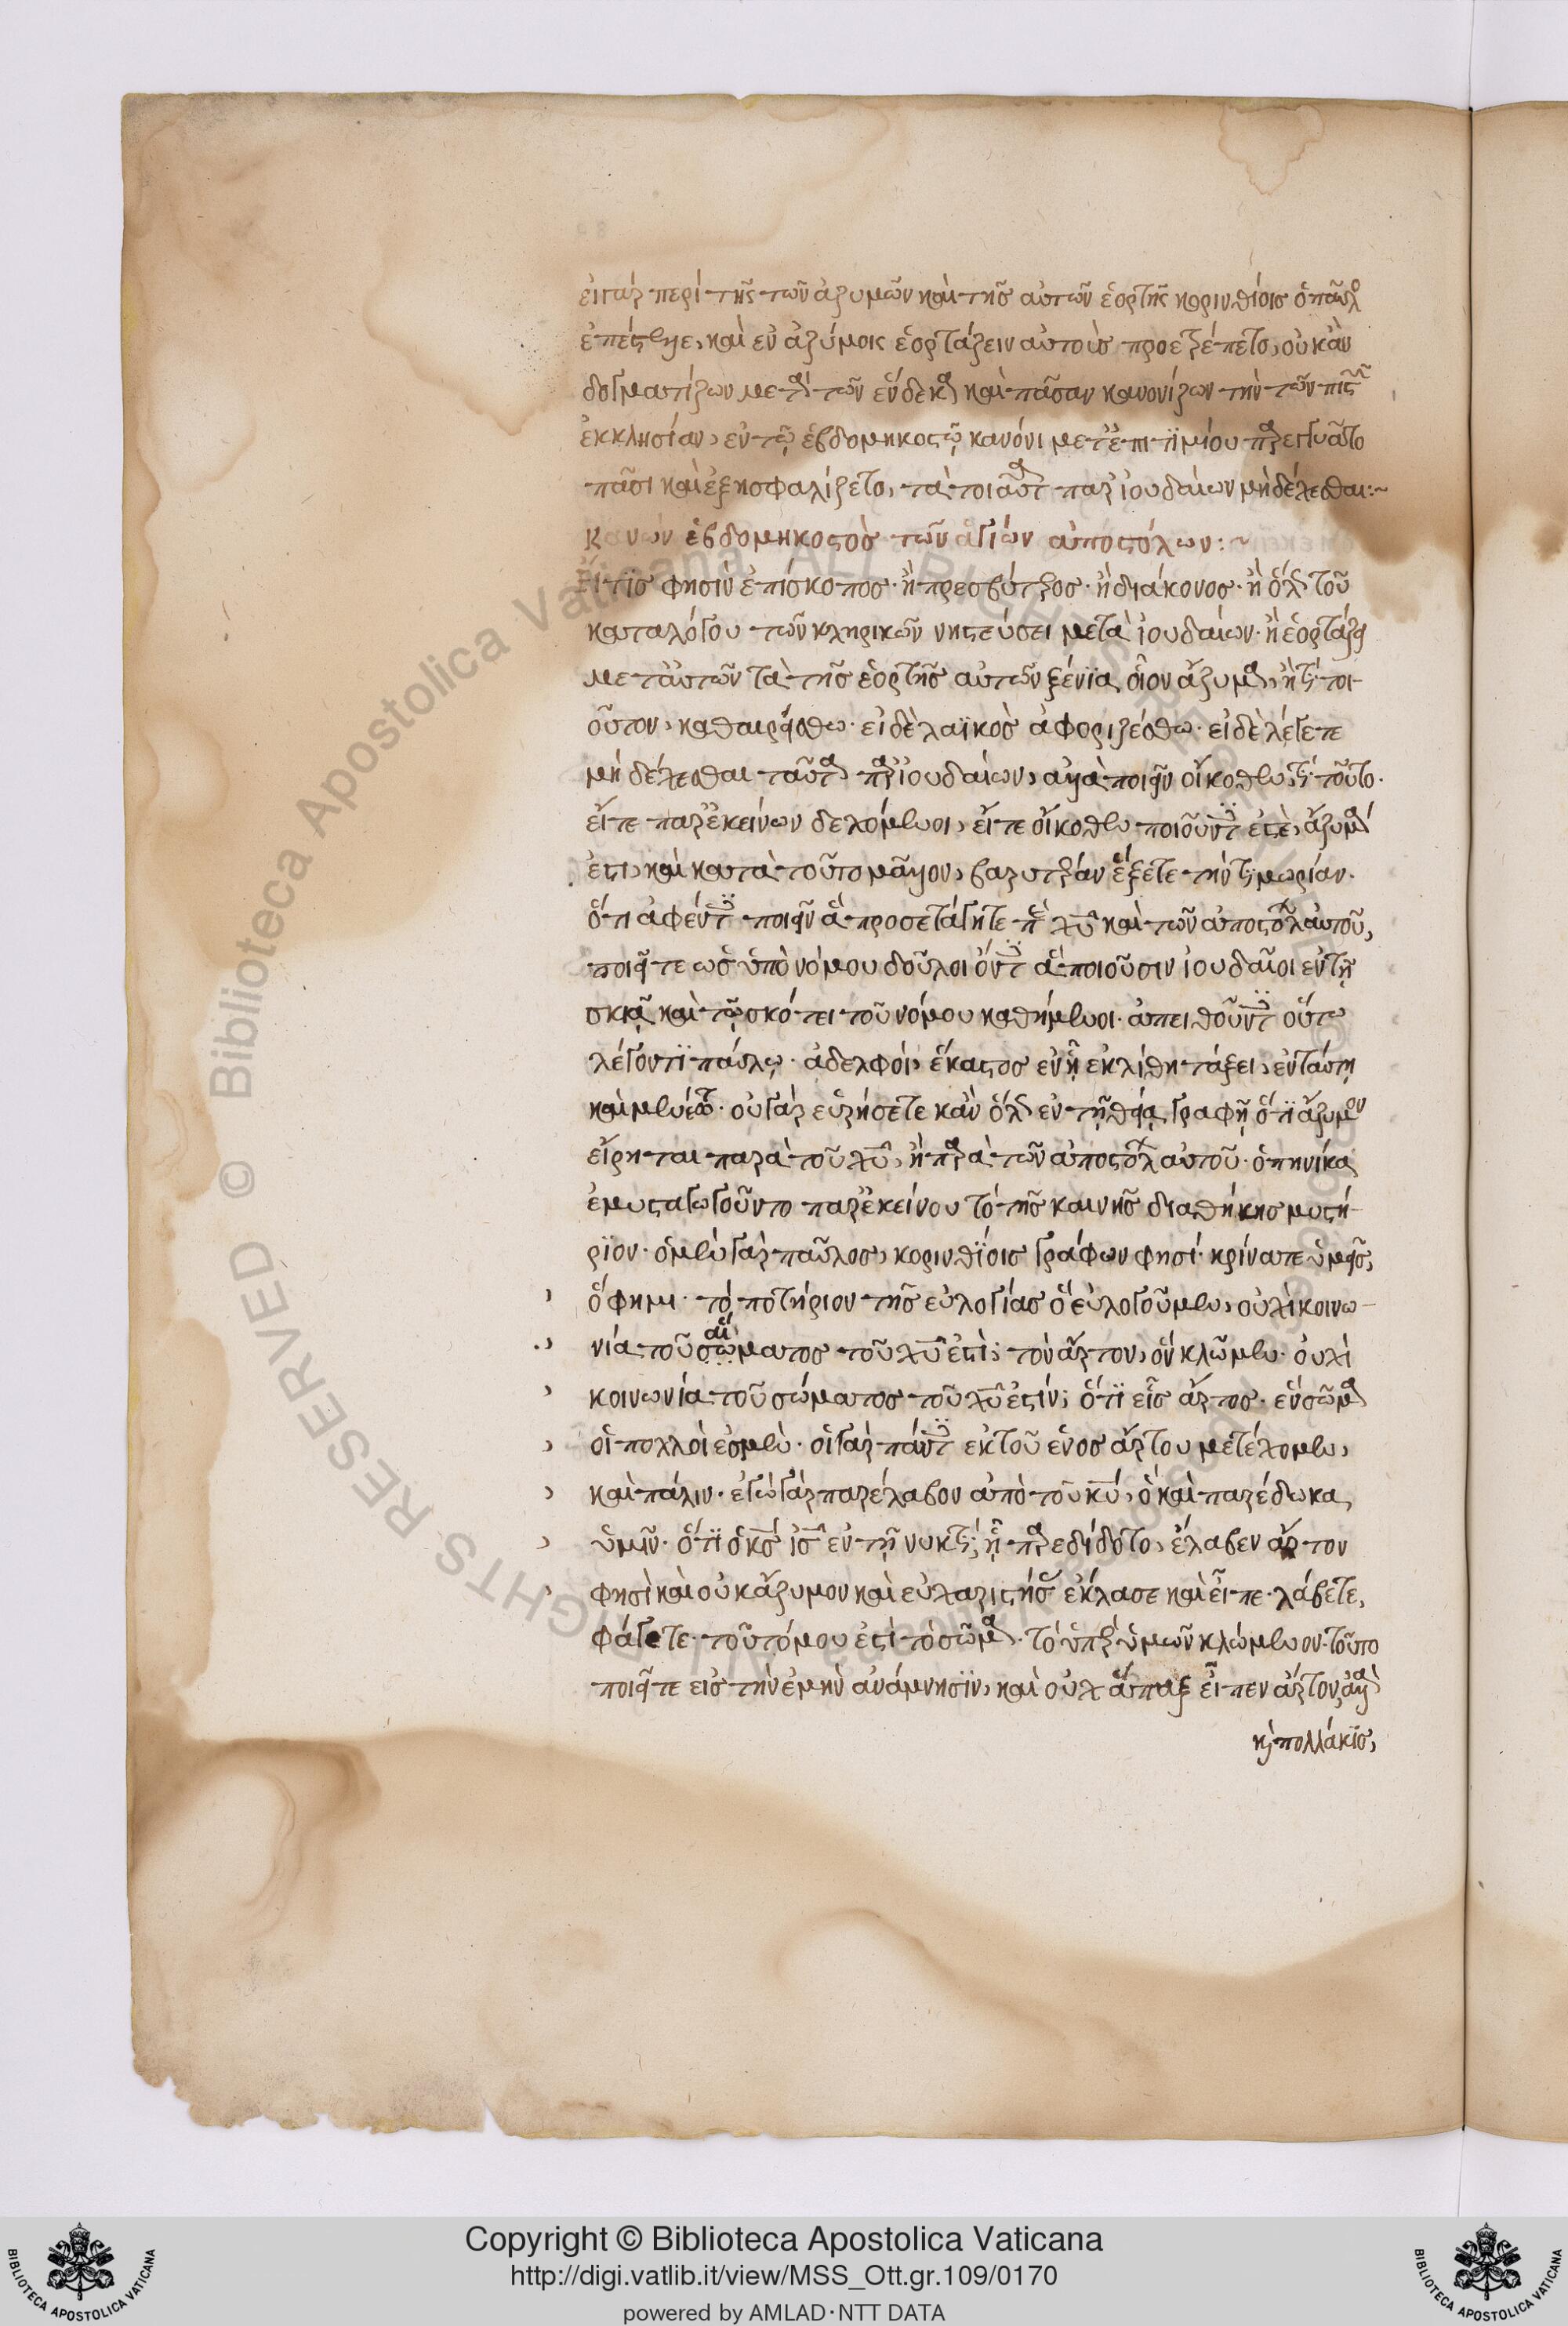 εἰ γὰρ περὶ τῆς τῶν ἀζυμῶν καὶ τῆς αὐτῶν ἑορτῆς κορινθίοις ὁ παῦλο
ἐπέστελλε, καὶ ἐν ἀζύμοις ἑορτάζειν αὐτοὺς προετρέπετο, οὐκ ἂν
δογματίζων μετὰ τῶν ἕνδεκα καὶ πᾶσαν κανονίζων τὴν τῶν πιστ
ἐκκλησίαν, ἐν τῷ ἑβδομηκοστῷ κανόνι μετ ἐπιτϊμίου παρεγγυᾶτο
πᾶσι καὶ ἐξησφαλίζετο, τὰ τοιαῦτα παρ ἰουδαίων μὴ δέχεσθαι:~
Κανὼν ἑβδομηκοστὸς τῶν ἁγίων ἀποστόλων:~
Εἴ τϊς φησὶν ἐπίσκοπος· ἢ πρεσβύτερος· ἢ διάκονος· ἢ ὅλως τοῦ
καταλόγου τῶν κληρικῶν νηστεύσει μετὰ ἰουδαίων· ἢ ἑορτάζει
μετ αὐτῶν τὰ τῆς ἑορτῆς αὐτῶν ξένϊα, οἷον ἄζυμα, ἤ τι τοι
οῦτον, καθαιρείσθω· εἰ δὲ λαϊκὸς ἀφοριζέσθω· εἰ δὲ λέγετε
μὴ δέχεσθαι ταῦτα παρ ἰουδαίων, ἀλλὰ ποιεῖν οἴκοθεν, τί τοῦτο·
εἴτε παρ ἐκείνων δεχόμενοι, εἴτε οἴκοθεν ποιοῦντες ἐστὲ, ἄζυμά
ἐστι, καὶ κατὰ τοῦτο μᾶλλον, βαρυτέραν ἕξετε τὴν τϊμωρίαν·
ὅτι ἀφέντες ποιεῖν ἃ προσετάγητε παρὰ χῦ καὶ τῶν ἀποστόλ αὐτοῦ,
ποιεῖτε ὡς ὑπὸ νόμου δοῦλοι ὄντες ἃ ποιοῦσιν ἰουδαῖοι ἐν τῇ
σκιᾷ καὶ τῷ σκότει τοῦ νόμου καθήμενοι· ἀπειθοῦντες οὕτω
λέγοντϊ παύλῳ· ἀδελφοὶ, ἕκαστος ἐν ᾗ ἐκλίθη τάξει, ἐν ταύτῃ
καὶ μενέτω· οὐ γὰρ εὑρήσετε κἂν ὅλως ἐν τῇ θείᾳ γραφῇ ὅτϊ ἄζυμον
εἴρηται παρὰ τοῦ χῦ, ἢ παρὰ τῶν ἀποστόλ αὐτοῦ· ὁπηνίκα
ἐμυσταγωγοῦντο παρ ἐκείνου τὸ τῆς καινῆς διαθήκης μυστή
ρϊον· ὁ μὲν γὰρ παῦλος, κορινθϊοις γράφων φησί· κρίνατε ὑμεῖς,
ὅ φημι· τὸ ποτήριον τῆς εὐλογίας ὃ εὐλογοῦμεν, οὐχὶ κοινω
νία τοῦ σώματος τοῦ χῦ ἐστὶ; τὸν ἄρτον, ὃν κλῶμεν· οὐχὶ
αἵ
κοινωνία τοῦ σώματος τοῦ χῦ ἐστίν; ὅτϊ εἷς ἄρτος· ἓν σῶμα
οἱ πολλοὶ ἐσμὲν· οἱ γὰρ πάντες ἐκ τοῦ ἑνὸς ἄρτου μετέχομεν,
καὶ πάλιν· ἐγὼ γὰρ παρέλαβον ἀπὸ τοῦ κυ, ὃ καὶ παρέδωκα
ὑμῖν· ὅτϊ ὁ κς ἰς ἐν τῇ νυκτὶ, ᾗ παρεδίδοτο, ἔλαβεν ἄρτον
φησὶ καὶ οὐκ ἄζυμον καὶ εὐχαριστήσας ἔκλασε καὶ εἶπε· λάβετε,
φάγετε· τοῦτό μου ἐστὶ τὸ σῶμα· τὸ ὑπὲρ ὑμῶν κλώμενον· τοῦτο
ποιεῖτε εἰς τὴν ἐμὴν ἀνάμνησϊν, καὶ οὐχ ἅπαξ εἶπεν ἄρτον, ἀλλὰ
καὶ πολλάκϊς,
Copyright © Biblioteca Apostolica Vaticana
http://digi.vatlib.it/view/MSS_Ott.gr.109/0170
powered by AMLAD·NTT DATA
BIBLIOTECA APOSTOLICA VATICANA
BIBLIOTECA APOSTOLICA VATICANA